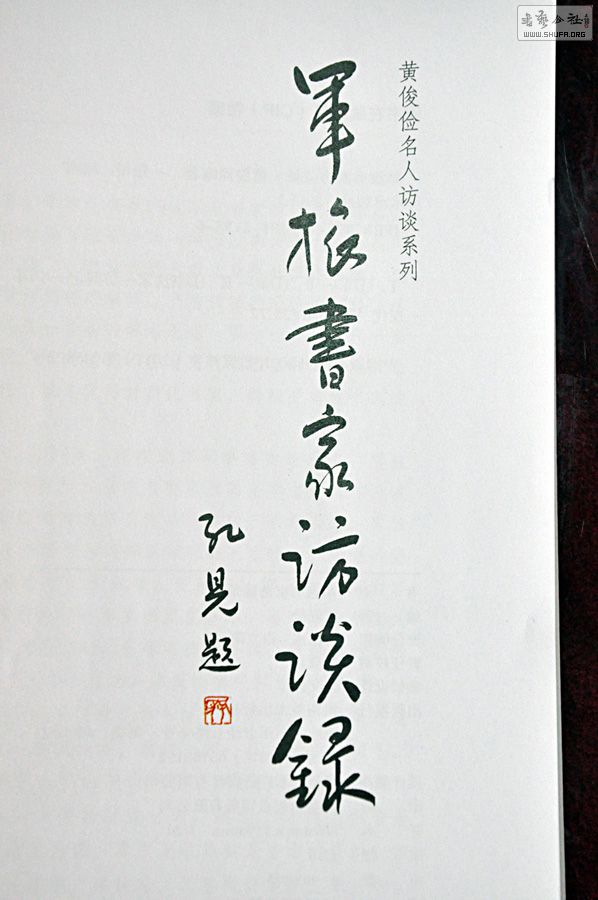 黄俊俭名人访谈系列
軍旅書家访谈録
孔見題
书艺公社
WWW.SHUFA.ORG